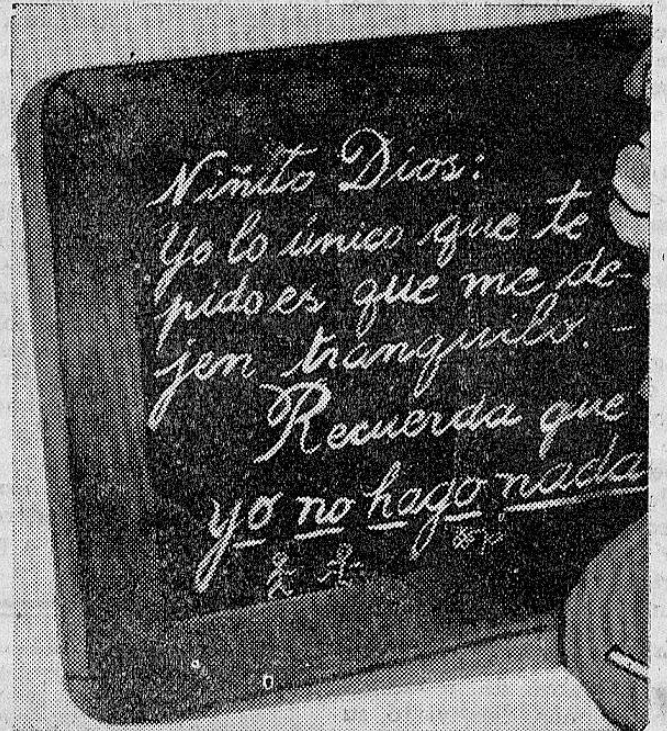 Niñito Dios:
Yo lo único que te
pido es que me de-
jen tranquilo. -
Recuerda que
yo no hago nada